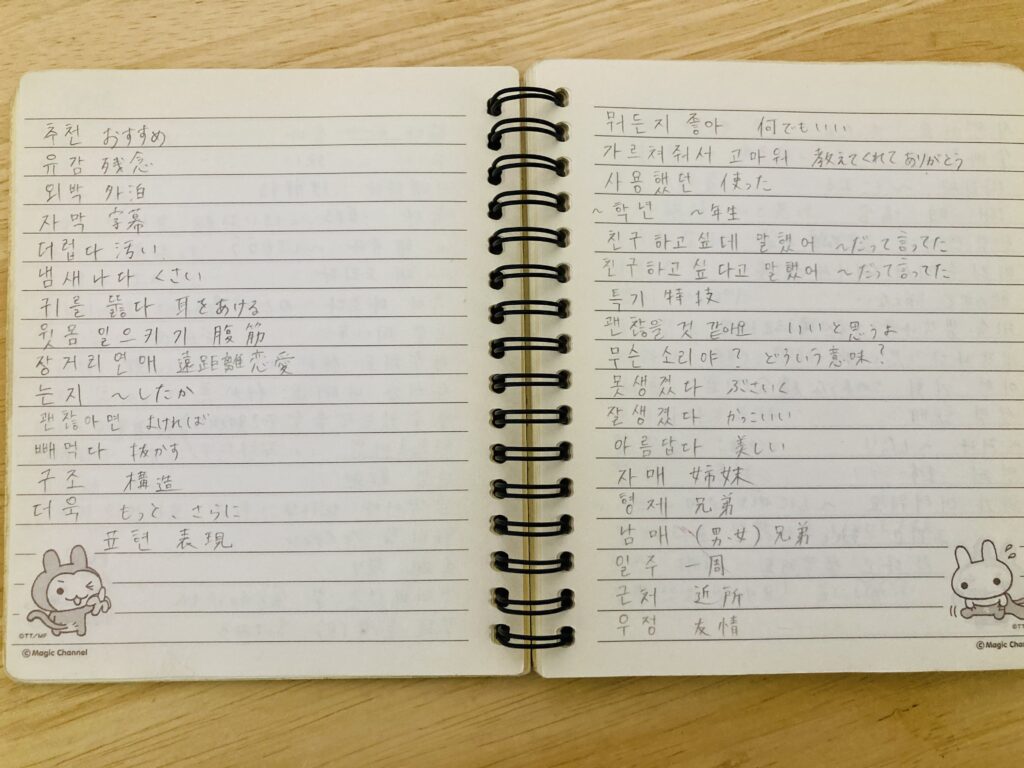 추천 おすすめ
유감 残念
외박 外泊
자막 字幕
더럽다 汚い
냄새나다 くさい
귀를 뚫다 耳をあける
윗몸 일으키기 腹筋
장거리연애 遠距離恋愛
는지 〜したか
괜찮아면 よければ
빼먹다 抜かす
구조 構造
더욱 もっと、さらに
표현 表現
©TT/WF
©Magic Channel
뭐든지 좋아 何でもいい
가르쳐줘서 고마워 教えてくれてありがとう
사용했던 使った
~학년 ~年生
친구하고싶데 말했어 〜だって言ってた
친구하고싶다고 말했어 〜だって言ってた
특기 特技
괜찮을 것 같아요 いいと思うよ
무슨 소리야? どういう意味?
못생겼다 ぶさいく
잘생겼다 かっこいい
아름답다 美しい
자매 姉妹
형제 兄弟
남매 (男女)兄弟
일주 一周
근처 近所
우정 友情
©Magic Chan